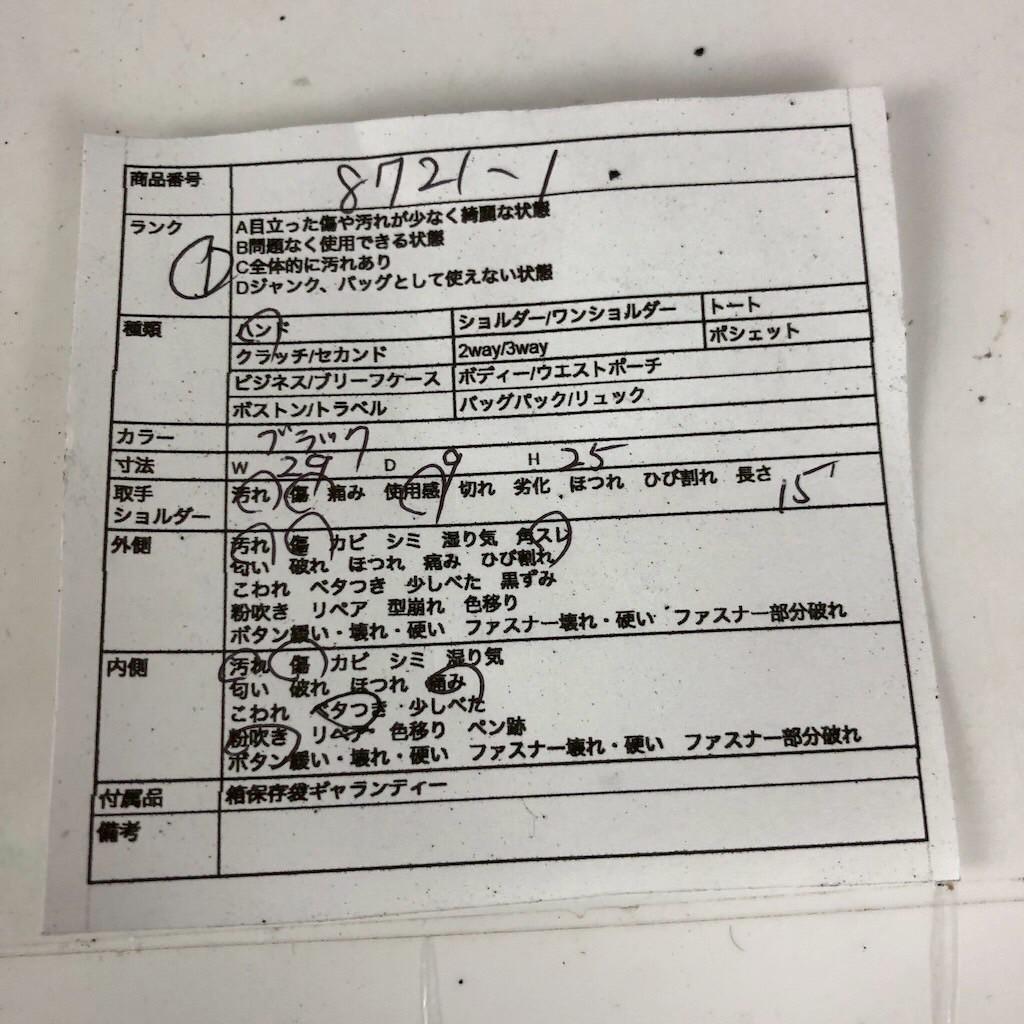 商品番号 8721-1
ランク
A目立った傷や汚れが少なく綺麗な状態
B問題なく使用できる状態
C全体的に汚れあり
Dジャンク、バッグとして使えない状態
種類
ハンド ショルダー/ワンショルダー トート
クラッチ/セカンド 2way/3way ポシェット
ビジネス/ブリーフケース ボディー/ウエストポーチ
ボストン/トラベル バッグパック/リュック
カラー ブラック
寸法 W 29 D 9 H 25
取手 汚れ 傷 痛み 使用感 切れ 劣化 ほつれ ひび割れ 長さ 15
ショルダー
外側 汚れ 傷 カビ シミ 湿り気 角スレ
匂い 破れ ほつれ 痛み ひび割れ
こわれ ベタつき 少しべた 黒ずみ
粉吹き リペア 型崩れ 色移り
ボタン緩い・壊れ・硬い ファスナー壊れ・硬い ファスナー部分破れ
内側 汚れ 傷 カビ シミ 湿り気
匂い 破れ ほつれ 痛み
こわれ ベタつき 少しべた
粉吹き リペアー 色移り ペン跡
ボタン緩い・壊れ・硬い ファスナー壊れ・硬い ファスナー部分破れ
付属品 箱保存袋ギャランティー
備考